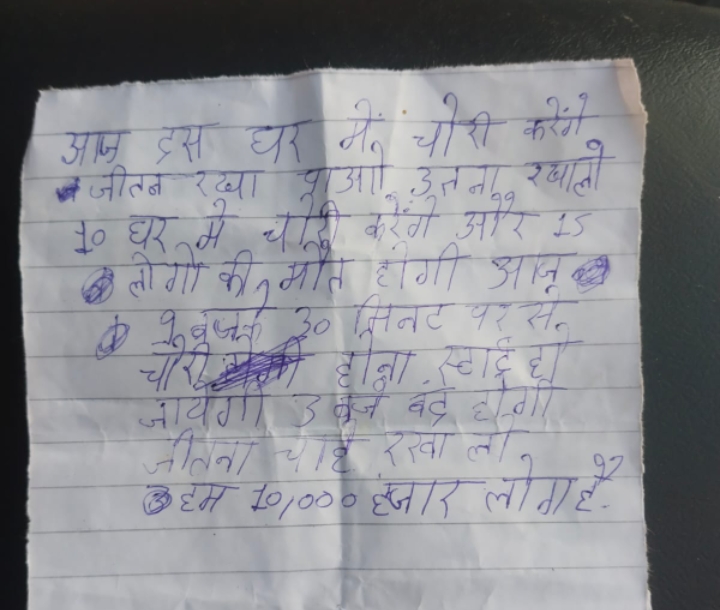 आज दस घर में चोरी करेंगे
जीतन रखा पाओ उतना रखालो
10 घर मे चोरी करेंगे और 15
लोगो की मौत होगी आज
9 बजके 30 मिनट पर से
चोरी होना स्टार्ट हो
जायेगी 3 बजे बंद होगी
जीतना चाहे रखा लो
हम 10,000 हजार लोग है.